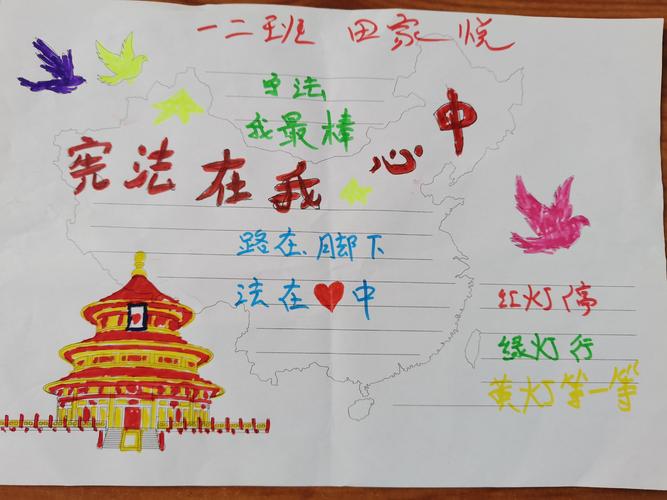 一二班 田家悦
守法
我最棒
宪法在我心中
路在脚下
法在❤中
红灯停
绿灯行
黄灯等一等